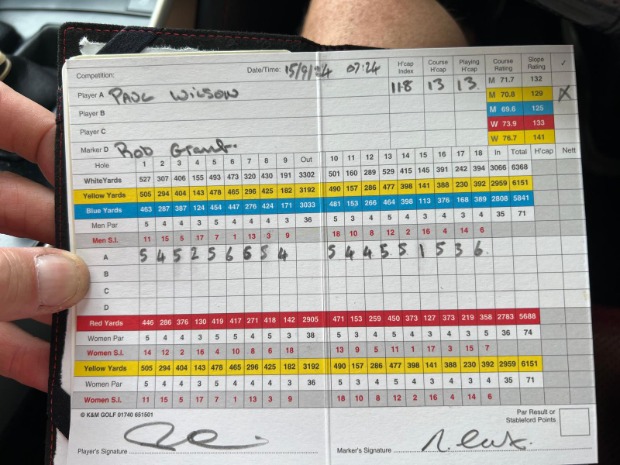 Competition: Date/Time: 15/9/24 07:24 H'cap Index Course H'cap Playing H'cap Course Rating Slope Rating ✓
M 71.7 132
Player A PAUL WILSON 11.8 13 13 M 70.8 129 X
Player B M 69.6 125
Player C W 73.9 133
Marker D Rob Grant. W 76.7 141
Hole 1 2 3 4 5 6 7 8 9 Out 10 11 12 13 14 15 16 17 18 In Total H'cap Nett
White Yards 527 307 406 155 493 473 320 430 191 3302 501 160 289 529 415 145 391 242 394 3066 6368
Yellow Yards 505 294 404 143 478 465 296 425 182 3192 490 157 286 477 398 141 388 230 392 2959 6151
Blue Yards 453 287 387 124 454 447 276 424 171 3033 481 153 266 464 398 113 376 168 389 2808 5841
Men Par 5 4 4 3 5 4 4 4 3 36 5 3 4 5 4 3 4 3 4 35 71
Men S.I. 11 15 5 17 7 1 13 3 9 18 10 8 12 2 16 4 14 6
A 5 4 5 2 5 6 6 5 4 5 4 4 5 5 1 5 3 6
B
C
D
Red Yards 446 286 376 130 419 417 271 418 142 2905 471 153 259 450 373 127 373 219 358 2783 5688
Women Par 5 4 4 3 5 5 4 5 3 38 5 3 4 5 4 3 4 3 5 36 74
Women S.I. 14 12 2 16 4 10 8 6 18 13 9 5 11 1 17 3 15 7
Yellow Yards 505 294 404 143 478 465 296 425 182 3192 490 157 286 477 398 141 388 230 392 2959 6151
Women Par 5 4 4 3 5 4 4 4 3 36 5 3 4 5 4 3 4 3 4 35 71
Women S.I. 11 15 5 17 7 1 13 3 9 18 10 8 12 2 16 4 14 6
© K&M GOLF 01740 651501 Par Result or Stableford Points
Player's Signature Marker's Signature